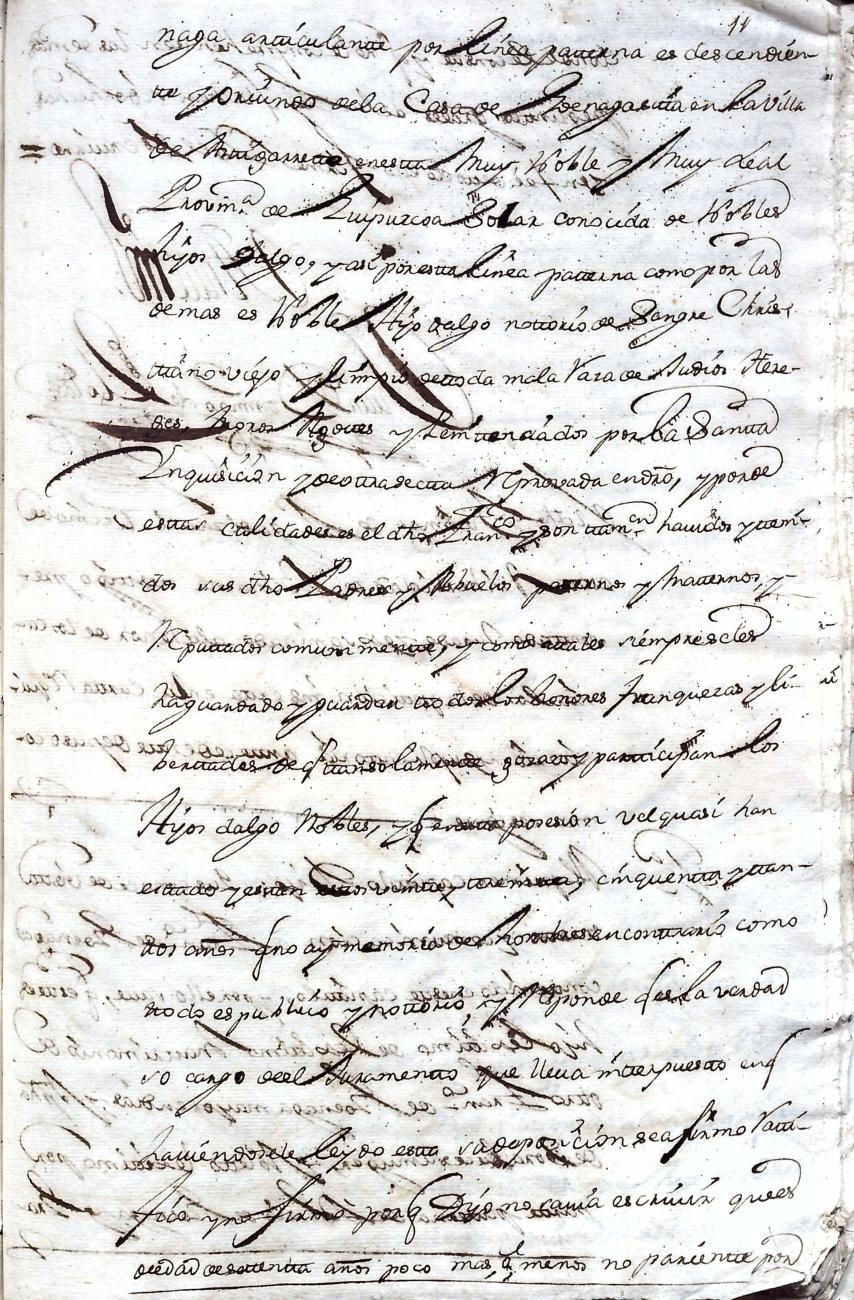 11
naga articulante por línea paterna es descendien-
te y oriundo de la Casa de Loenaga sita en la Villa
= de Anzigarreta en esta Muy Noble y Muy Leal
Provinᵃ de Guipuzcoa Solar conocida de Nobles
hijos dalgo, y asi por esta línea paterna como por las
demas es Noble Hijo dalgo nottorio de Sangre Chris-
ttiano viejo y limpio de ttoda mala Raza de Judios Here-
des, Moros Agotes y Penitenciados por la Santta
Inquisicion y de otra secta Reprovada en dro, y por de
estas calidades es el dho Franᶜᵒ y son ttamᵉⁿ havidos y teni-
dos sus dho Padres y Abuelos paternos y Maternos, y
Reputtados comunmentte, y como a tales siempre se les
ha guardado y guardan ttodos los honores franquezas y li-
berttades de q tan solamente gozan y participan los
Hijos dalgo Nobles, y q en esta posesión vel quasi han
esttado y estan estos veinte y treintta, cinquentta y tan-
ttos años q no ay memoria de hombres en conttrario como
ttodo es publico y nottorio, y Responde q es la verdad
so cargo de el Juramentto que lleva interpuesto en q
haviendosele leydo esta su deposicion se afirmo Ratti-
fico y no firmo porq Dijo no savia escrivir que es
de edad de settentta años poco mas o menos no parientte por